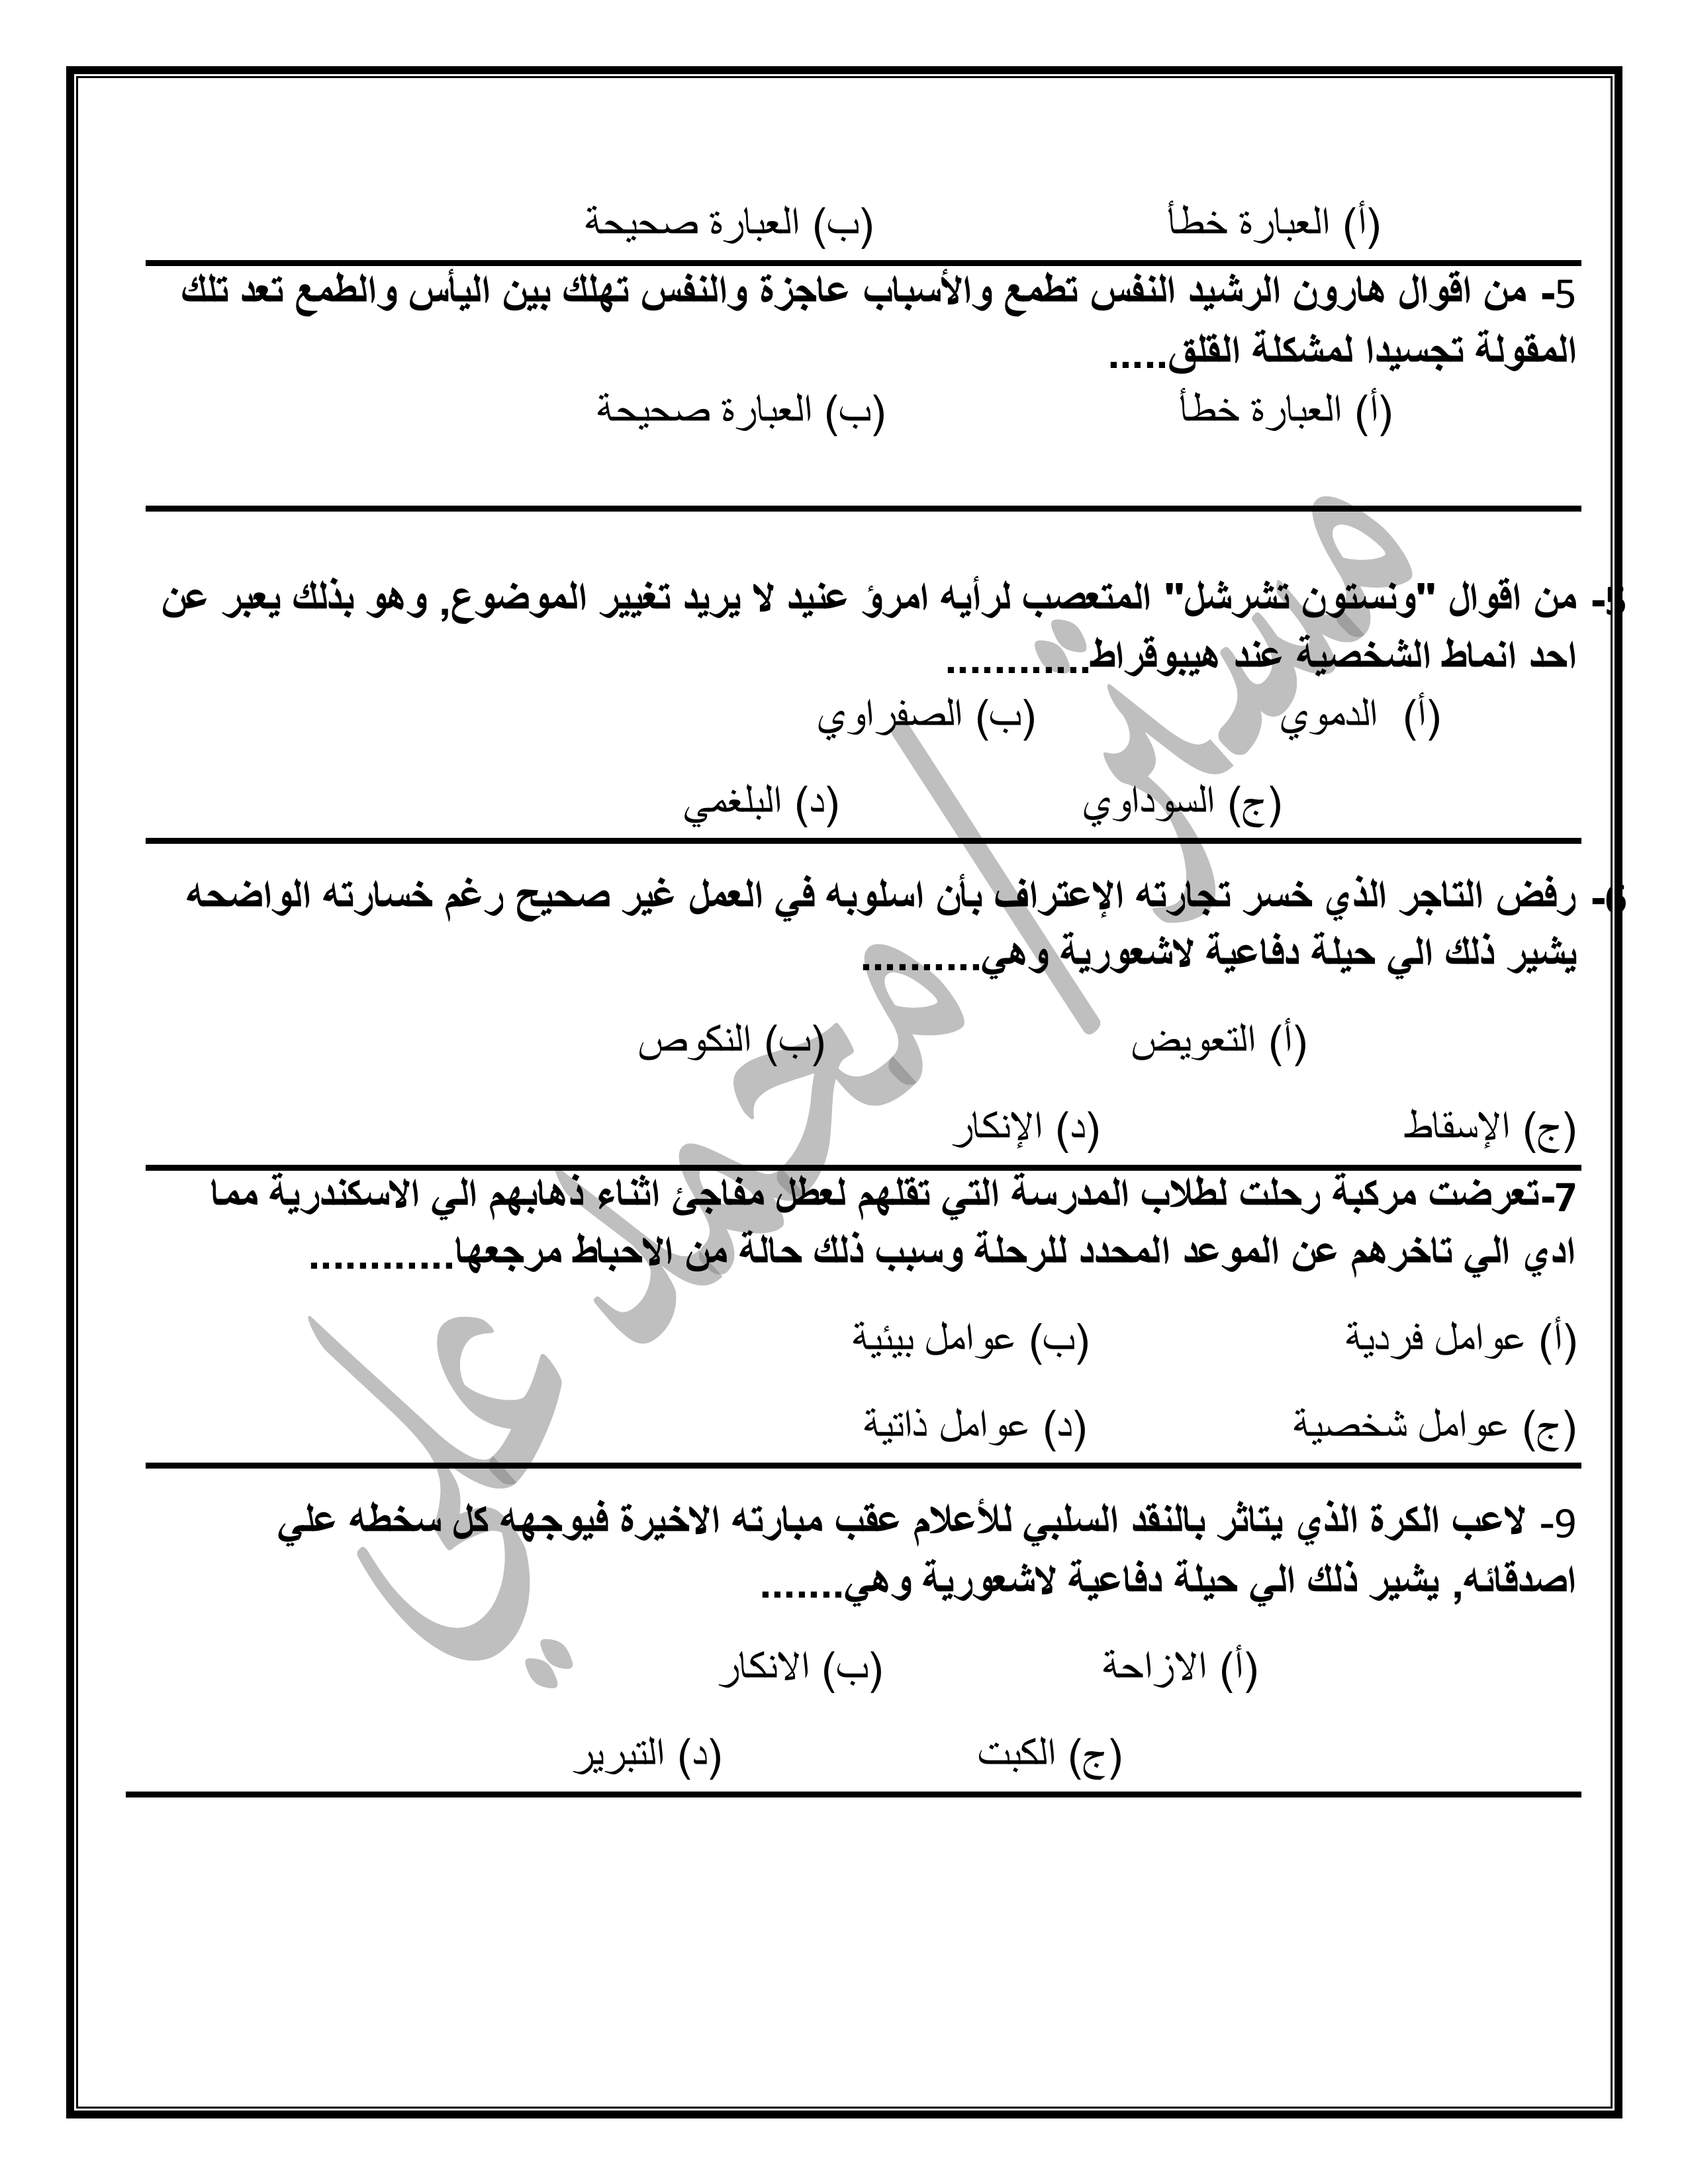 (أ) العبارة خطأ (ب) العبارة صحيحة
5- من اقوال هارون الرشيد النفس تطمع والأسباب عاجزة والنفس تهلك بين اليأس والطمع تعد تلك
المقولة تجسيدا لمشكلة القلق.....
(أ) العبارة خطأ (ب) العبارة صحيحة
5- من اقوال "ونستون تشرشل" المتعصب لرأيه امرؤ عنيد لا يريد تغيير الموضوع, وهو بذلك يعبر عن
احد انماط الشخصية عند هيبوقراط............
(أ) الدموي (ب) الصفراوي
(ج) السوداوي (د) البلغمي
6- رفض التاجر الذي خسر تجارته الإعتراف بأن اسلوبه في العمل غير صحيح رغم خسارته الواضحه
يشير ذلك الي حيلة دفاعية لاشعورية وهي..........
(أ) التعويض (ب) النكوص
(ج) الإسقاط (د) الإنكار
7-تعرضت مركبة رحلت لطلاب المدرسة التي تقلهم لعطل مفاجئ اثناء ذهابهم الي الاسكندرية مما
ادي الي تاخرهم عن الموعد المحدد للرحلة وسبب ذلك حالة من الاحباط مرجعها............
(أ) عوامل فردية (ب) عوامل بيئية
(ج) عوامل شخصية (د) عوامل ذاتية
9- لاعب الكرة الذي يتاثر بالنقد السلبي للأعلام عقب مبارته الاخيرة فيوجهه كل سخطه علي
اصدقائه, يشير ذلك الي حيلة دفاعية لاشعورية وهي.......
(أ) الازاحة (ب) الانكار
(ج) الكبت (د) التبرير
مستر/محمد علي